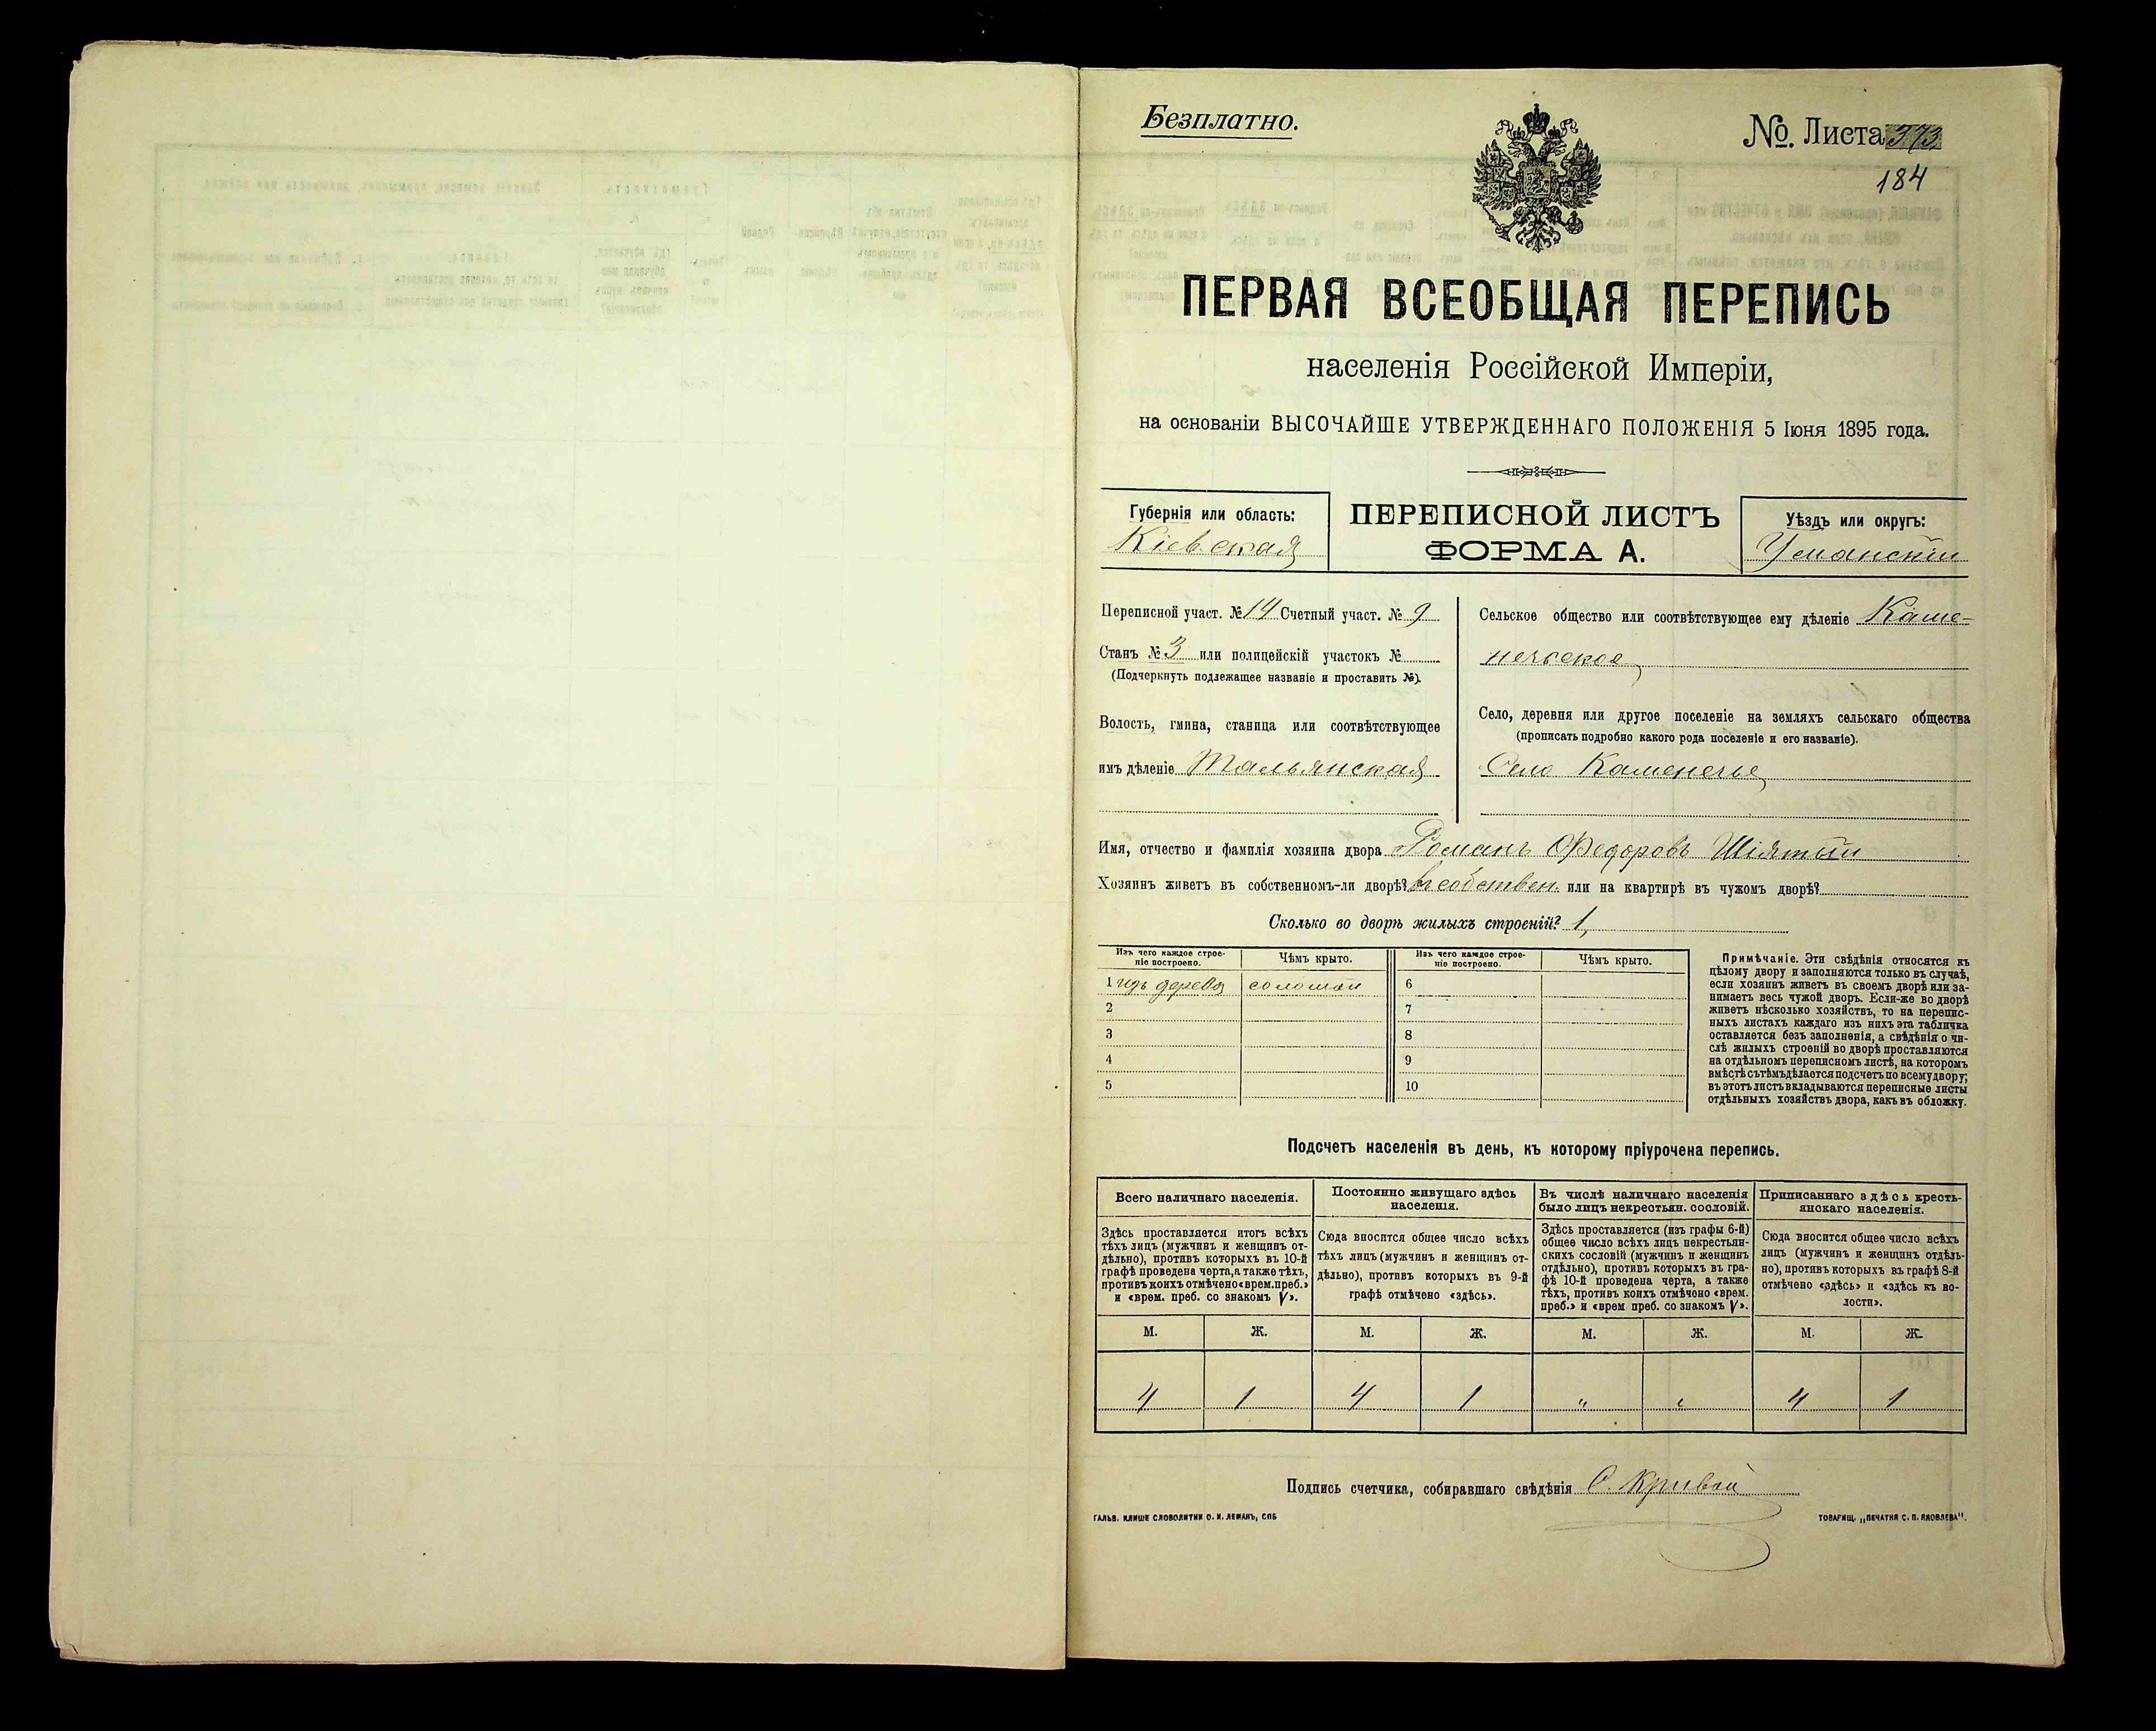 Безплатно.
№. Листа 373
184
ПЕРВАЯ ВСЕОБЩАЯ ПЕРЕПИСЬ
населенія Россійской Имперіи,
на основаніи ВЫСОЧАЙШЕ УТВЕРЖДЕННАГО ПОЛОЖЕНІЯ 5 Іюня 1895 года.
Губернія или область:
Кіевская
ПЕРЕПИСНОЙ ЛИСТЪ
ФОРМА А.
Уѣздъ или округъ:
Уманскій
Переписной участ. № 14 Счетный участ. № 9
Станъ № 3 или полицейскій участокъ №
(Подчеркнуть подлежащее названіе и проставить №).
Волость, гмина, станица или соотвѣтствующее
имъ дѣленіе Тальянская
Сельское общество или соотвѣтствующее ему дѣленіе Каме-
нечское
Село, деревня или другое поселеніе на земляхъ сельскаго общества
(прописать подробно какого рода поселеніе и его названіе).
Село Каменечье
Имя, отчество и фамилія хозяина двора Романъ Федоровъ Шіятый
Хозяинъ живетъ въ собственномъ-ли дворѣ? въ собствен. или на квартирѣ въ чужомъ дворѣ?
Сколько во дворѣ жилыхъ строеній? 1,
Изъ чего каждое строе-
ніе построено.
Чѣмъ крыто.
Изъ чего каждое строе-
ніе построено.
Чѣмъ крыто.
1 изъ дерева соломой
2
3
4
5
6
7
8
9
10
Примѣчаніе. Эти свѣдѣнія относятся къ
цѣлому двору и заполняются только въ случаѣ,
если хозяинъ живетъ въ своемъ дворѣ или за-
нимаетъ весь чужой дворъ. Если-же во дворѣ
живетъ нѣсколько хозяйствъ, то на перепис-
ныхъ листахъ каждаго изъ нихъ эта табличка
оставляется безъ заполненія, а свѣдѣнія о чи-
слѣ жилыхъ строеній во дворѣ проставляются
на отдѣльномъ переписномъ листѣ, на которомъ
вмѣстѣ съ тѣмъ дѣлается подсчетъ по всему двору;
въ этотъ листъ вкладываются переписные листы
отдѣльныхъ хозяйствъ двора, какъ въ обложку.
Подсчетъ населенія въ день, къ которому пріурочена перепись.
Всего наличнаго населенія.
Здѣсь проставляется итогъ всѣхъ
тѣхъ лицъ (мужчинъ и женщинъ от-
дѣльно), противъ которыхъ въ 10-й
графѣ проведена черта, а также тѣхъ,
противъ коихъ отмѣчено «врем. преб.»
и «врем. преб. со знакомъ V».
Постоянно живущаго здѣсь
населенія.
Сюда вносится общее число всѣхъ
тѣхъ лицъ (мужчинъ и женщинъ от-
дѣльно), противъ которыхъ въ 9-й
графѣ отмѣчено «здѣсь».
Въ числѣ наличнаго населенія
было лицъ некрестьян. сословій.
Здѣсь проставляется (изъ графы 6-й)
общее число всѣхъ лицъ некрестьян-
скихъ сословій (мужчинъ и женщинъ
отдѣльно), противъ которыхъ въ гра-
фѣ 10-й проведена черта, а также
тѣхъ, противъ коихъ отмѣчено «врем.
преб.» и «врем преб. со знакомъ V».
Приписаннаго здѣсь кресть-
янскаго населенія.
Сюда вносится общее число всѣхъ
лицъ (мужчинъ и женщинъ отдѣль-
но), противъ которыхъ въ графѣ 8-й
отмѣчено «здѣсь» и «здѣсь къ во-
лости».
М. Ж. М. Ж. М. Ж. М. Ж.
4 1 4 1 " " 4 1
Подпись счетчика, собиравшаго свѣдѣнія С. Кривой
ГАЛЬВ. КЛИШЕ СЛОВОЛИТНИ О. И. ЛЕМАНЪ, СПБ
ТОВАРИЩ. „ПЕЧАТНЯ С. П. ЯКОВЛЕВА".